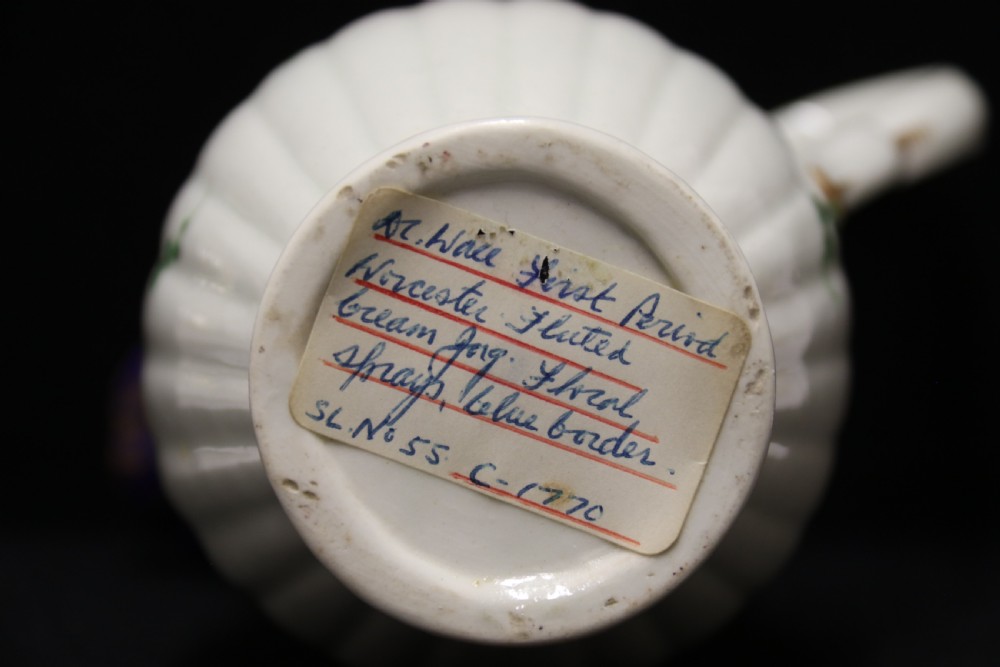 Dr. Wall First Period
Worcester Fluted
Cream Jug. Floral
Sprays, blue border.
SL. No 55 C-1770